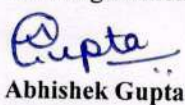 Gupta
Abhishek Gupta